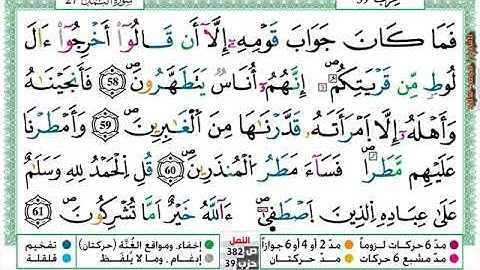 حزب 39
سورة النمل 27
فَمَا كَانَ جَوَابَ قَوْمِهِۦٓ إِلَّآ أَن قَالُوٓاْ أَخْرِجُوٓاْ ءَالَ
لُوطٖ مِّن قَرْيَتِكُمُۥٓ إِنَّهُمُۥٓ أُنَاسٞ يَتَطَهَّرُونَۖ 58 فَأَنجَيْنَٰهُ
وَأَهْلَهُۥٓ إِلَّا اَ۪مْرَأَتَهُۥ قَدَّرْنَٰهَا مِنَ اَ۬لْغَٰبِرِينَۖ 59 وَأَمْطَرْنَا
عَلَيْهِم مَّطَراٗۖ فَسَآءَ مَطَرُ اُ۬لْمُنذَرِينَۖ 60 قُلِ اِ۬لْحَمْدُ لِلهِ وَسَلَٰمٌ
عَلَىٰ عِبَادِهِ اِ۬لذِينَ اَ۪صْطَف۪يٰٓۖ ءَآللَّهُ خَيْرٌ اَمَّا تُشْرِكُونَۖ 61
مدّ 6 حركات لزوماً مدّ 2 أو 4 أو 6 جوازاً
مدّ مشبع 6 حركات مدّ حركتان
النمل
ص 382
حزب 39
إخفاء، ومواقع الغُنَّة (حركتان) تفخيم
إدغام، وما لا يُلفَظ قلقلة